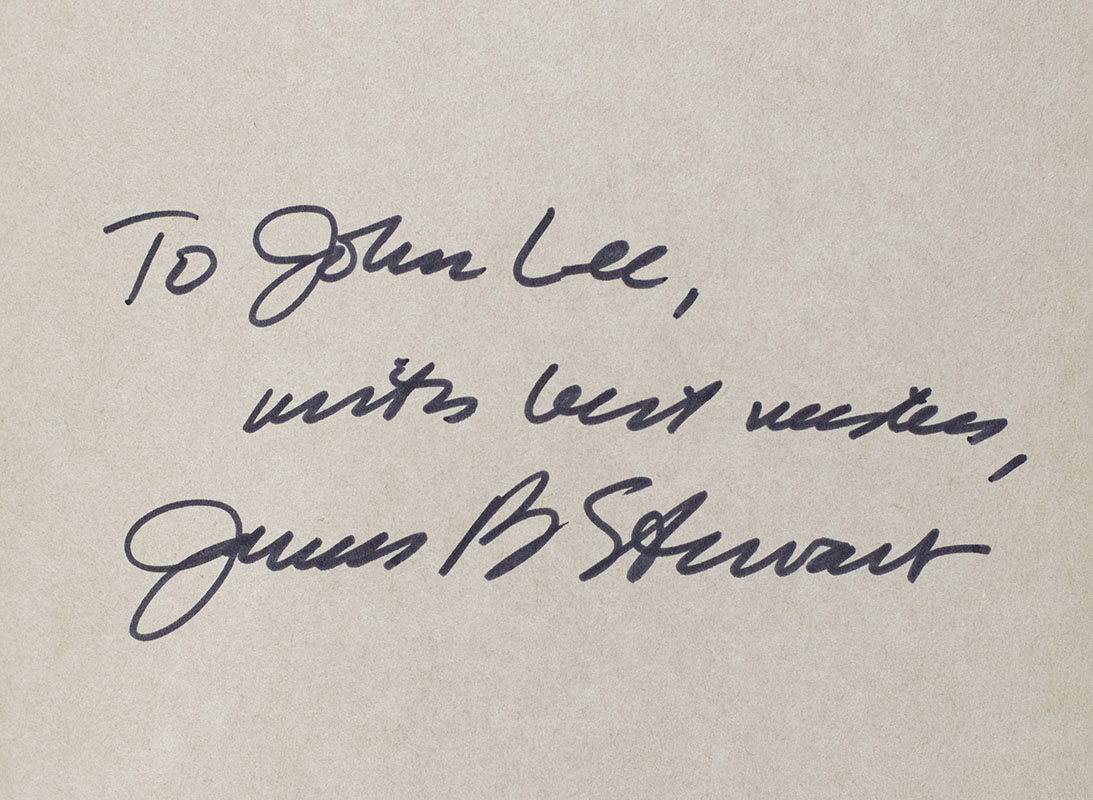 To John Lee,
with best wishes,
James B Stewart